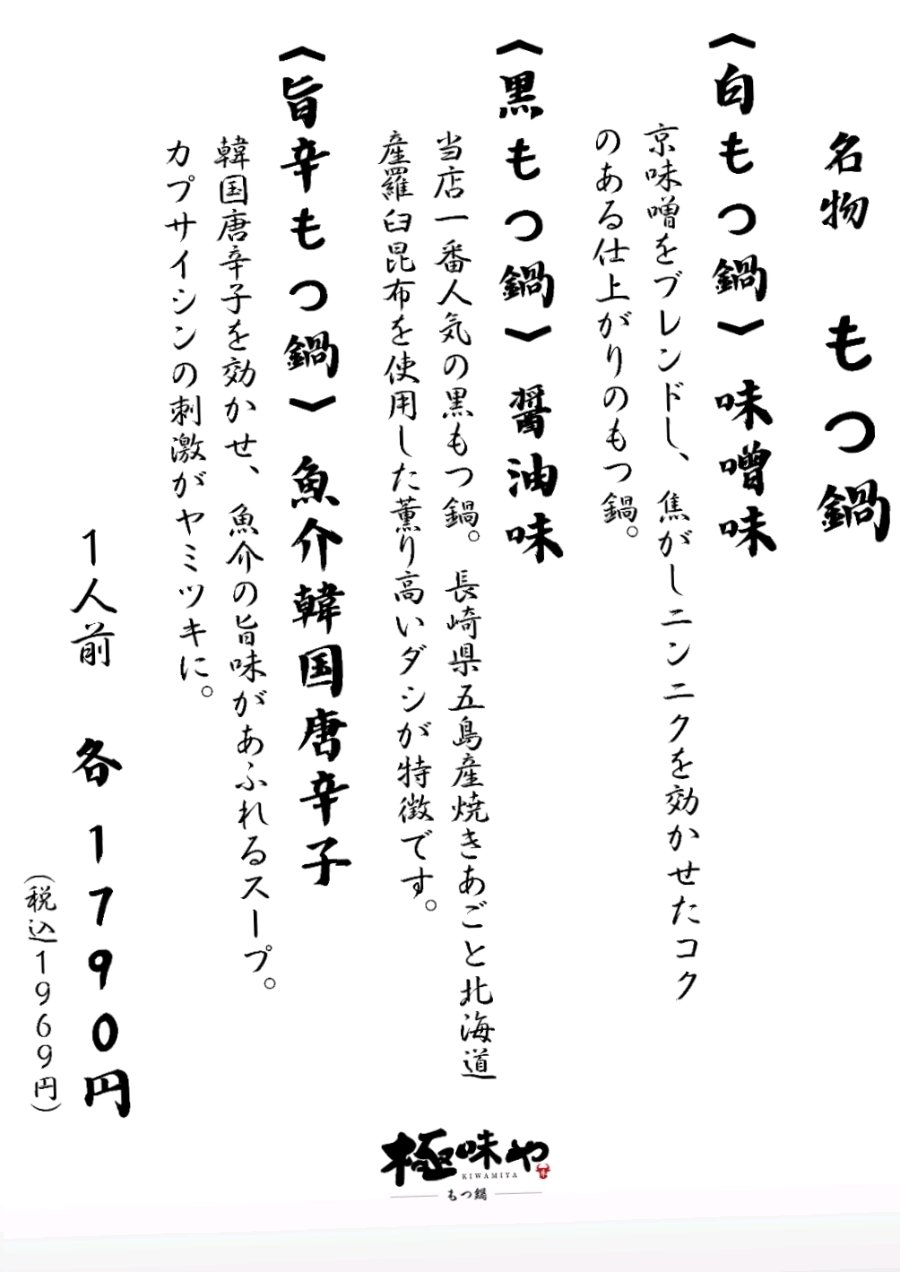 名物 もつ鍋
〈白もつ鍋〉味噌味
京味噌をブレンドし、焦がしニンニクを効かせたコク
のある仕上がりのもつ鍋。
〈黒もつ鍋〉醤油味
当店一番人気の黒もつ鍋。長崎県五島産焼きあごと北海道
産羅臼昆布を使用した薫り高いダシが特徴です。
〈旨辛もつ鍋〉魚介韓国唐辛子
韓国唐辛子を効かせ、魚介の旨味があふれるスープ。
カプサイシンの刺激がヤミツキに。
1人前 各1790円
(税込1969円)
極味や
KIWAMIYA
もつ鍋